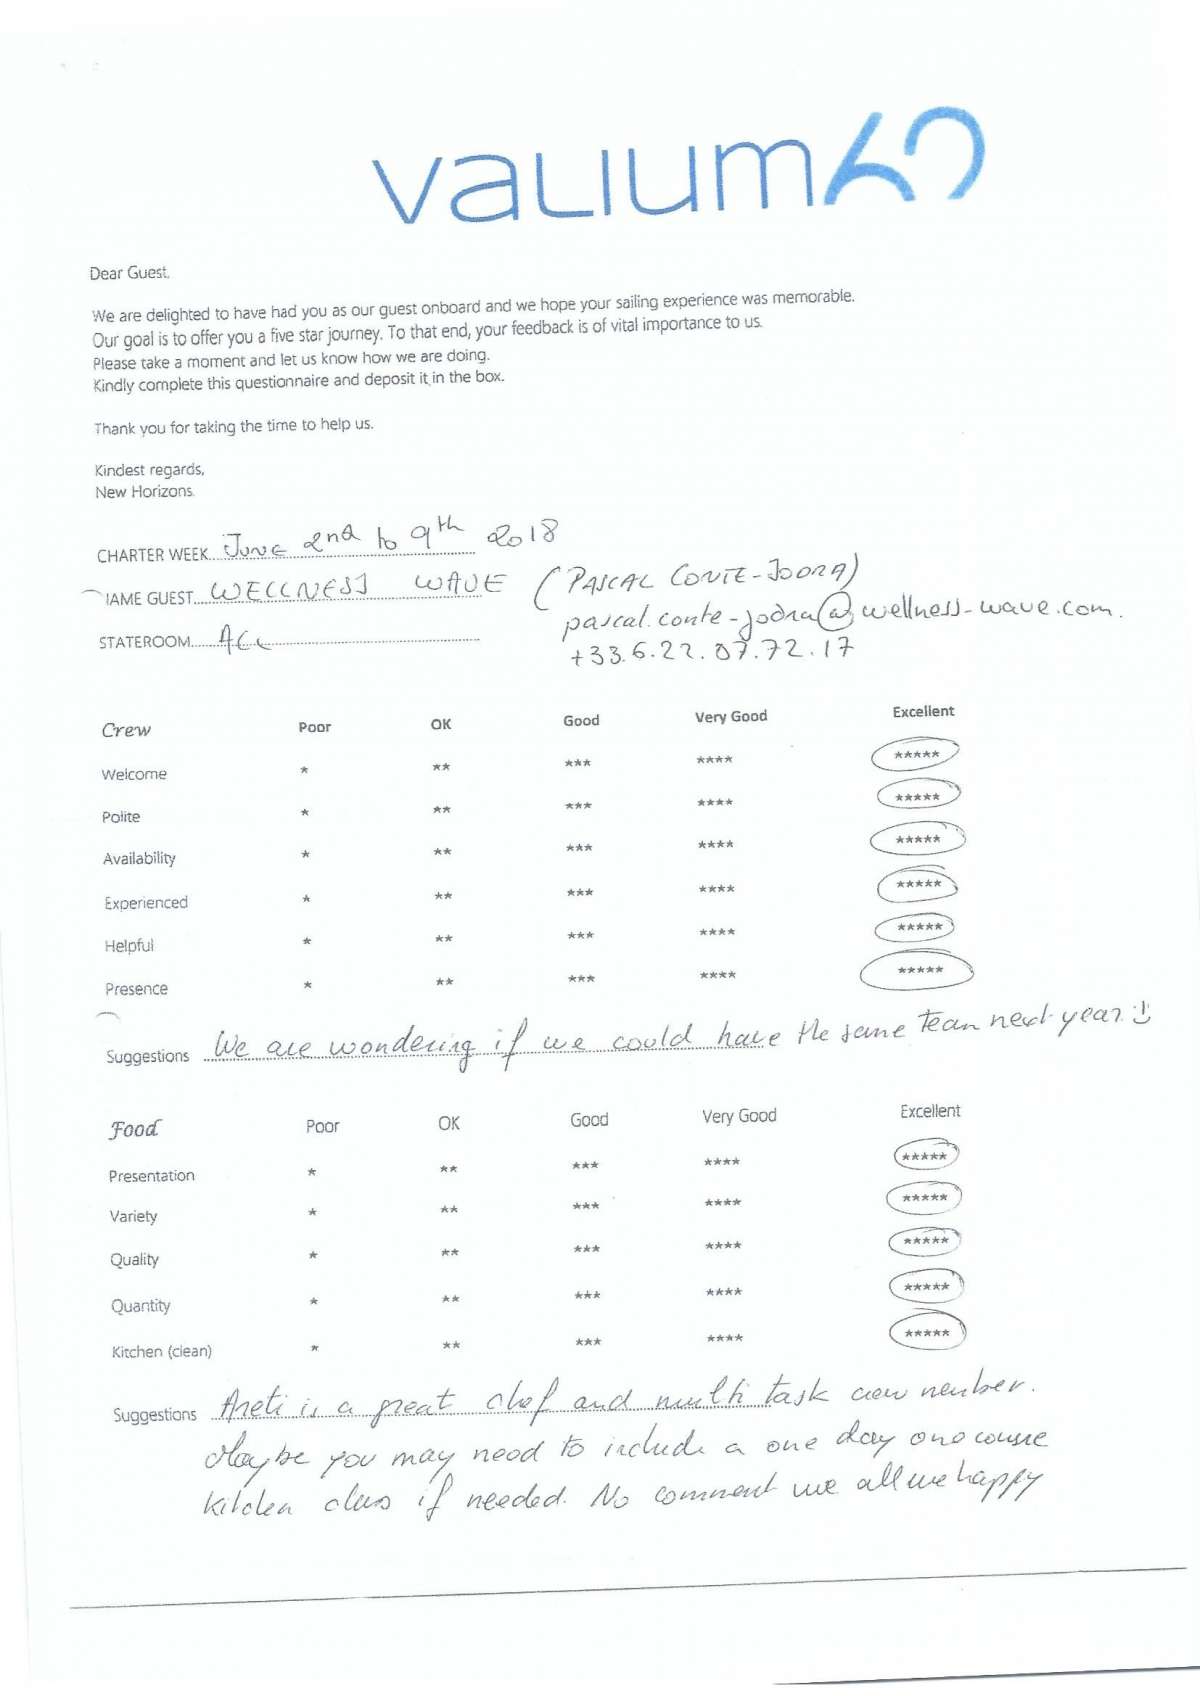 valium62
Dear Guest,
We are delighted to have had you as our guest onboard and we hope your sailing experience was memorable.
Our goal is to offer you a five star journey. To that end, your feedback is of vital importance to us.
Please take a moment and let us know how we are doing.
Kindly complete this questionnaire and deposit it in the box.
Thank you for taking the time to help us.
Kindest regards,
New Horizons.
CHARTER WEEK...June 2nd to 9th 2018
IAME GUEST...WELLNESS WAVE (PASCAL CONTE-JODRA)
pascal.conte-jodra@wellness-wave.com.
STATEROOM...ALL
+33.6.22.07.72.17
Crew Poor OK Good Very Good Excellent
Welcome * ** *** **** *****
Polite * ** *** **** *****
Availability * ** *** **** *****
Experienced * ** *** **** *****
Helpful * ** *** **** *****
Presence * ** *** **** *****
Suggestions We are wondering if we could have the same team next year :)
Food Poor OK Good Very Good Excellent
Presentation * ** *** **** *****
Variety * ** *** **** *****
Quality * ** *** **** *****
Quantity * ** *** **** *****
Kitchen (clean) * ** *** **** *****
Suggestions Areti is a great chef and multi task crew member.
Maybe you may need to include a one day one course
kitchen class if needed. No comment we all we happy